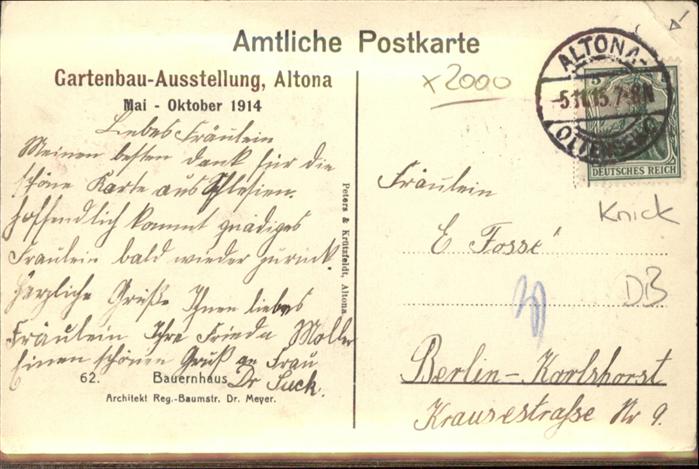 Amtliche Postkarte
Gartenbau-Ausstellung, Altona
Mai - Oktober 1914
Liebes Fräulein
Meinen besten Dank für die
schöne Karte aus Schlesien.
Hoffendlich kommt gnädiges
Fräulein bald wieder zurück.
Herzliche Grüße Ihnen liebes
Fräulein Ihre Frieda Moller
Einen schönen Gruß an Frau
Dr Suck.
62. Bauernhaus
Architekt Reg.-Baumstr. Dr. Meyer.
Peters & Krützfeldt, Altona
x2000
ALTONA-
5.11.15.7-8N
OTTENSEN
DEUTSCHES REICH
Knick
DB
Fräulein
E Fossé
Berlin-Karlshorst
Krausestraße Nr 9.